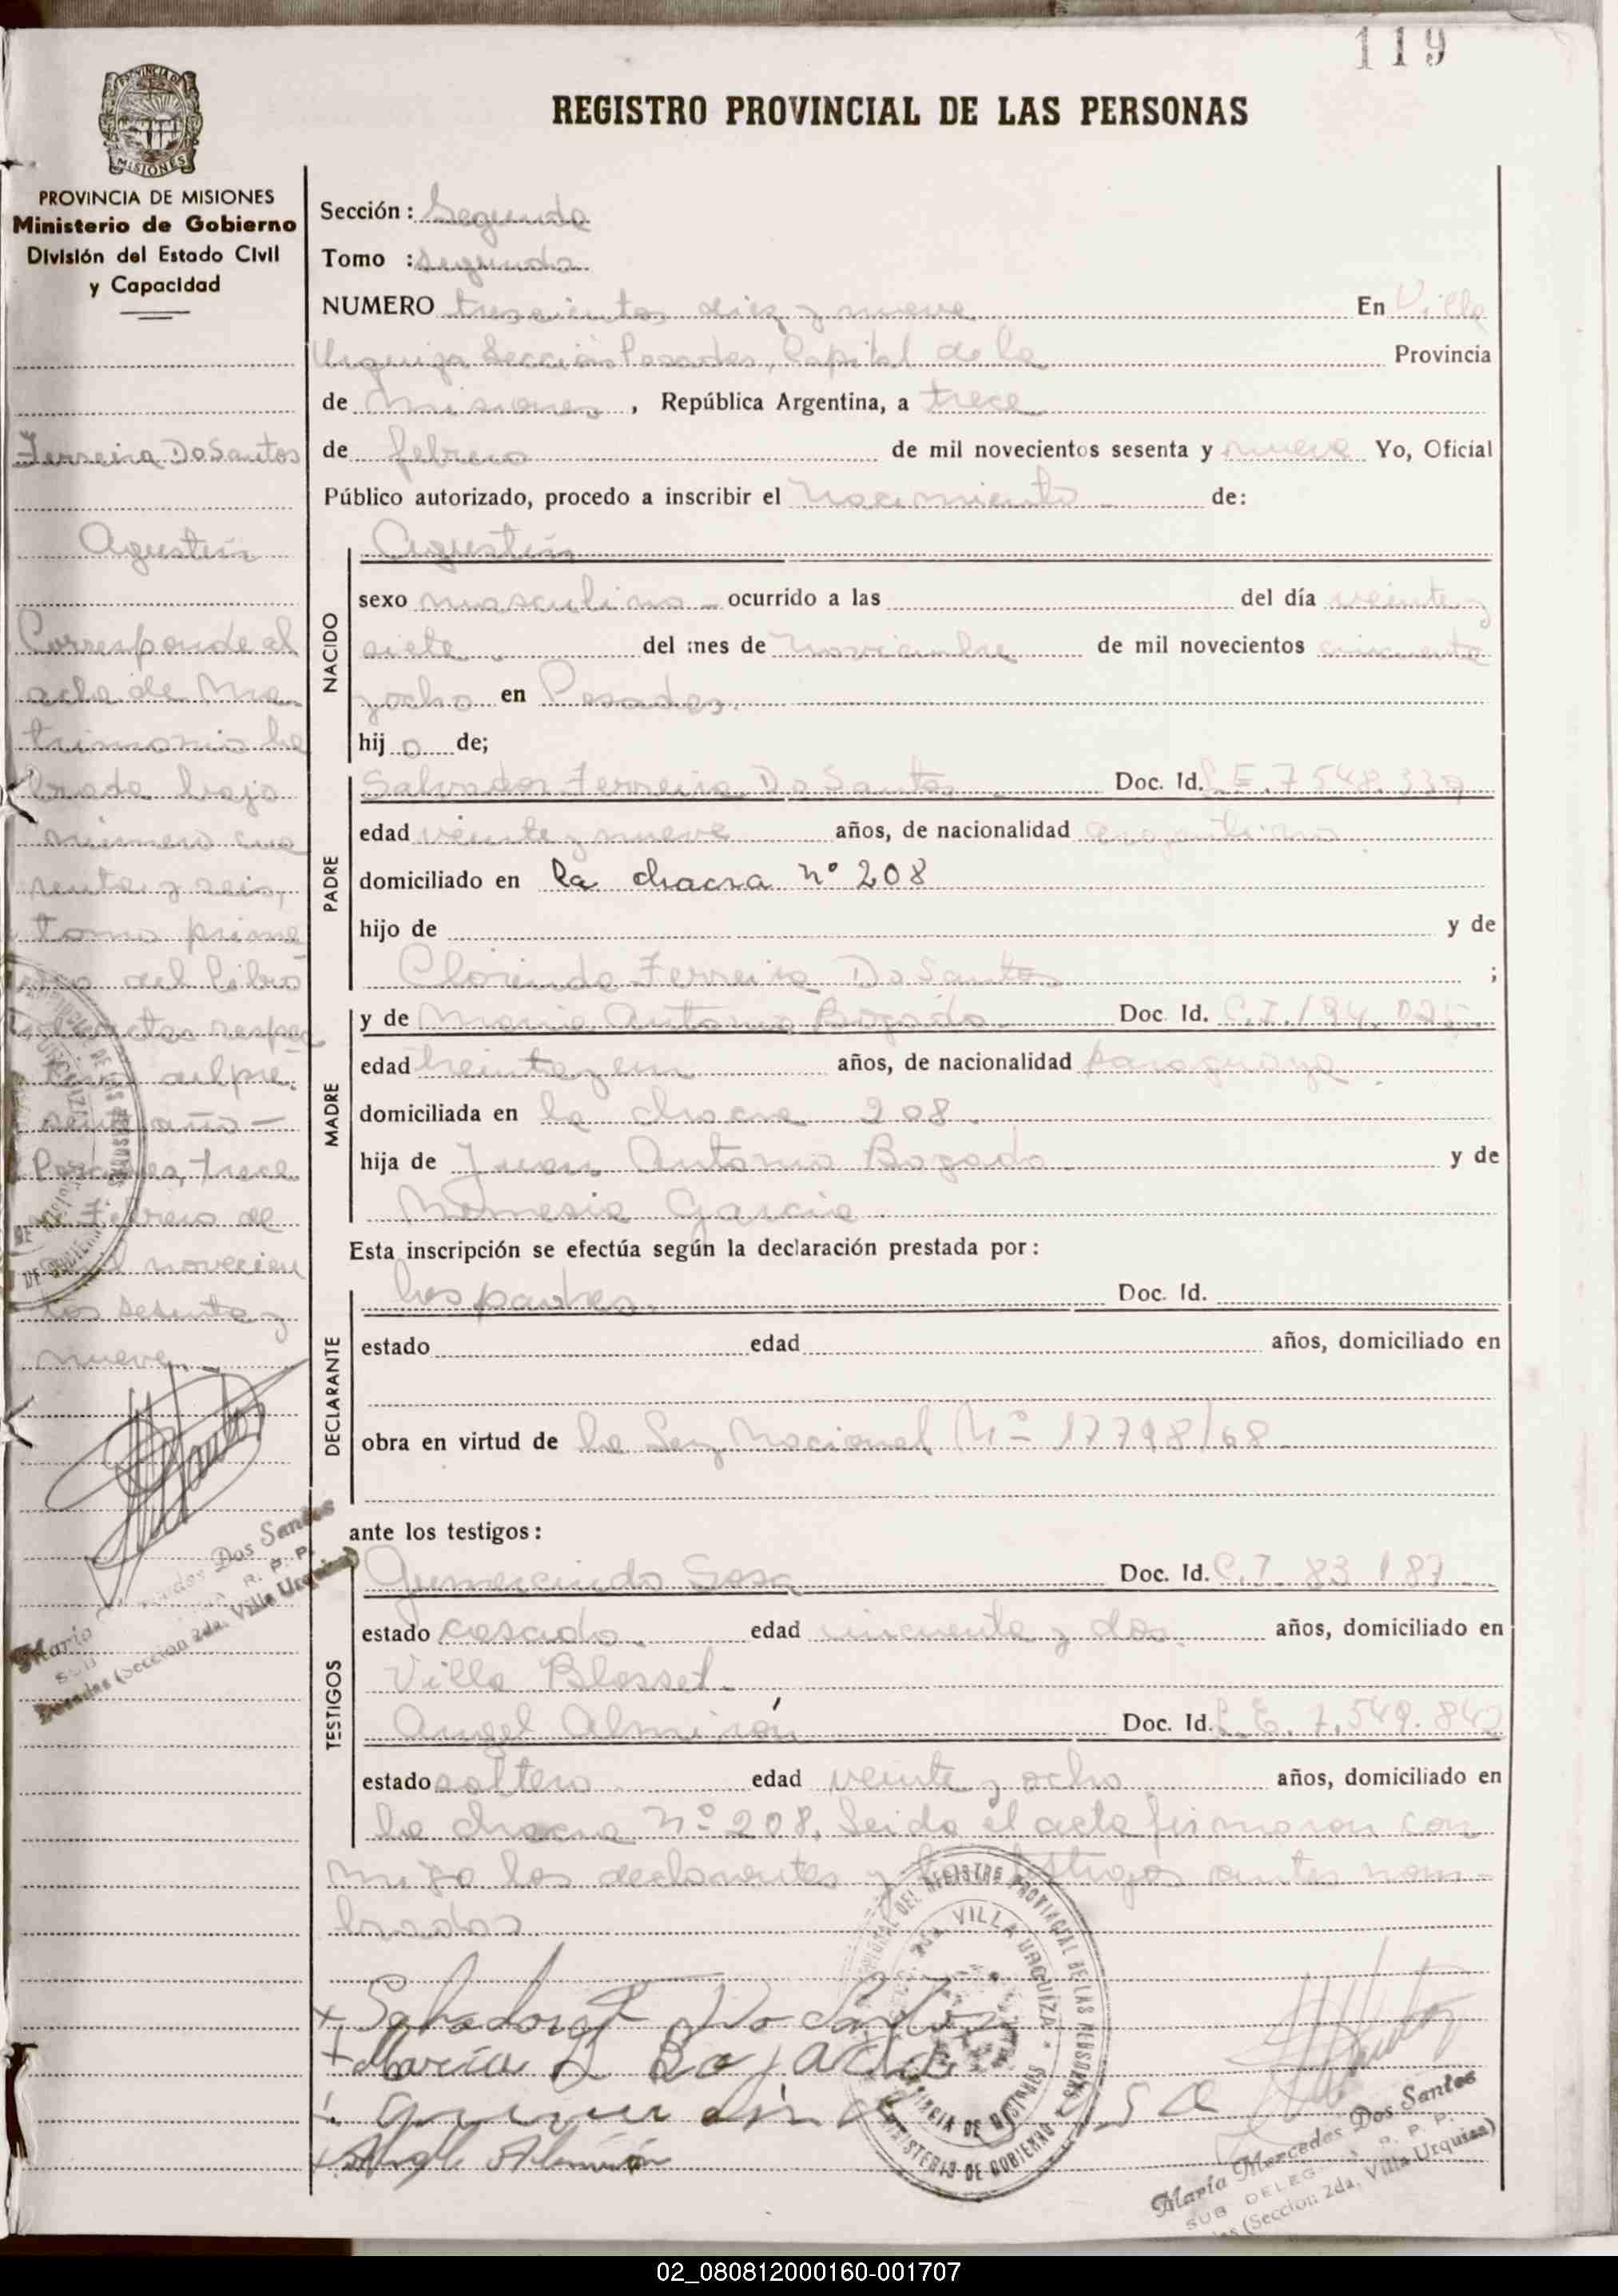 119
REGISTRO PROVINCIAL DE LAS PERSONAS
PROVINCIA DE MISIONES
MISIONES
PROVINCIA DE MISIONES
Ministerio de Gobierno
División del Estado Civil
y Capacidad
Ferreira Do Santos
Agustín
Corresponde al
acta de Ma-
trimonio
bajo
número cua
renta y seis,
tomo prime
ro del libro
respec
del pre-
sente año —
Posadas, trece
de Febrero de
mil novecien
tos sesenta y
nueve.
María Mercedes Dos Santos
SUB
R. P. P.
Posadas (Seccion 2da. Villa Urquiza)
Sección: Segunda
Tomo : segundo
NUMERO trescientos diez y nueve En Villa
Urquiza Sección Posadas, Capital de la Provincia
de Misiones, República Argentina, a trece
de febrero de mil novecientos sesenta y nueve Yo, Oficial
Público autorizado, procedo a inscribir el nacimiento de:
NACIDO
Agustín
sexo masculino ocurrido a las del día veinte y
siete del mes de noviembre de mil novecientos cincuenta
y ocho en Posadas.
hijo de;
PADRE
Salvador Ferreira Do Santos Doc. Id. L.E. 7.548.339
edad veinte y nueve años, de nacionalidad argentino
domiciliado en la chacra nº 208
hijo de y de
Clorinda Ferreira Do Santos ;
MADRE
y de María Antonia Bogado. Doc. Id. C.I. 194.025
edad treinta y un años, de nacionalidad paraguaya.
domiciliada en la chacra 208.
hija de Juan Antonio Bogado. y de
Nemesia Garcia.
Esta inscripción se efectúa según la declaración prestada por:
DECLARANTE
los padres. Doc. Id.
estado edad años, domiciliado en
obra en virtud de la Ley Nacional Nº 17798/68
ante los testigos:
TESTIGOS
Gumercindo Sosa Doc. Id. C.I. 83.187
estado casado. edad cincuenta y dos. años, domiciliado en
Villa Blosset.
Angel Almirón Doc. Id. L.E. 7.549.842
estado soltero. edad veinte y ocho años, domiciliado en
la chacra nº 208. Leida el acta firmaron con
migo los declarantes y los testigos antes nom-
brados
REGISTRO PROVINCIAL DE LAS PERSONAS
VILLA URQUIZA
PROVINCIA DE MISIONES
MINISTERIO DE GOBIERNO
+ Salvador F Do Santos
+ María A Bogado
Gumercindo Sosa
+ Angel Almirón
María Mercedes Dos Santos
SUB DELEG R. P. P.
(Seccion 2da, Villa Urquiza)
02_080812000160-001707